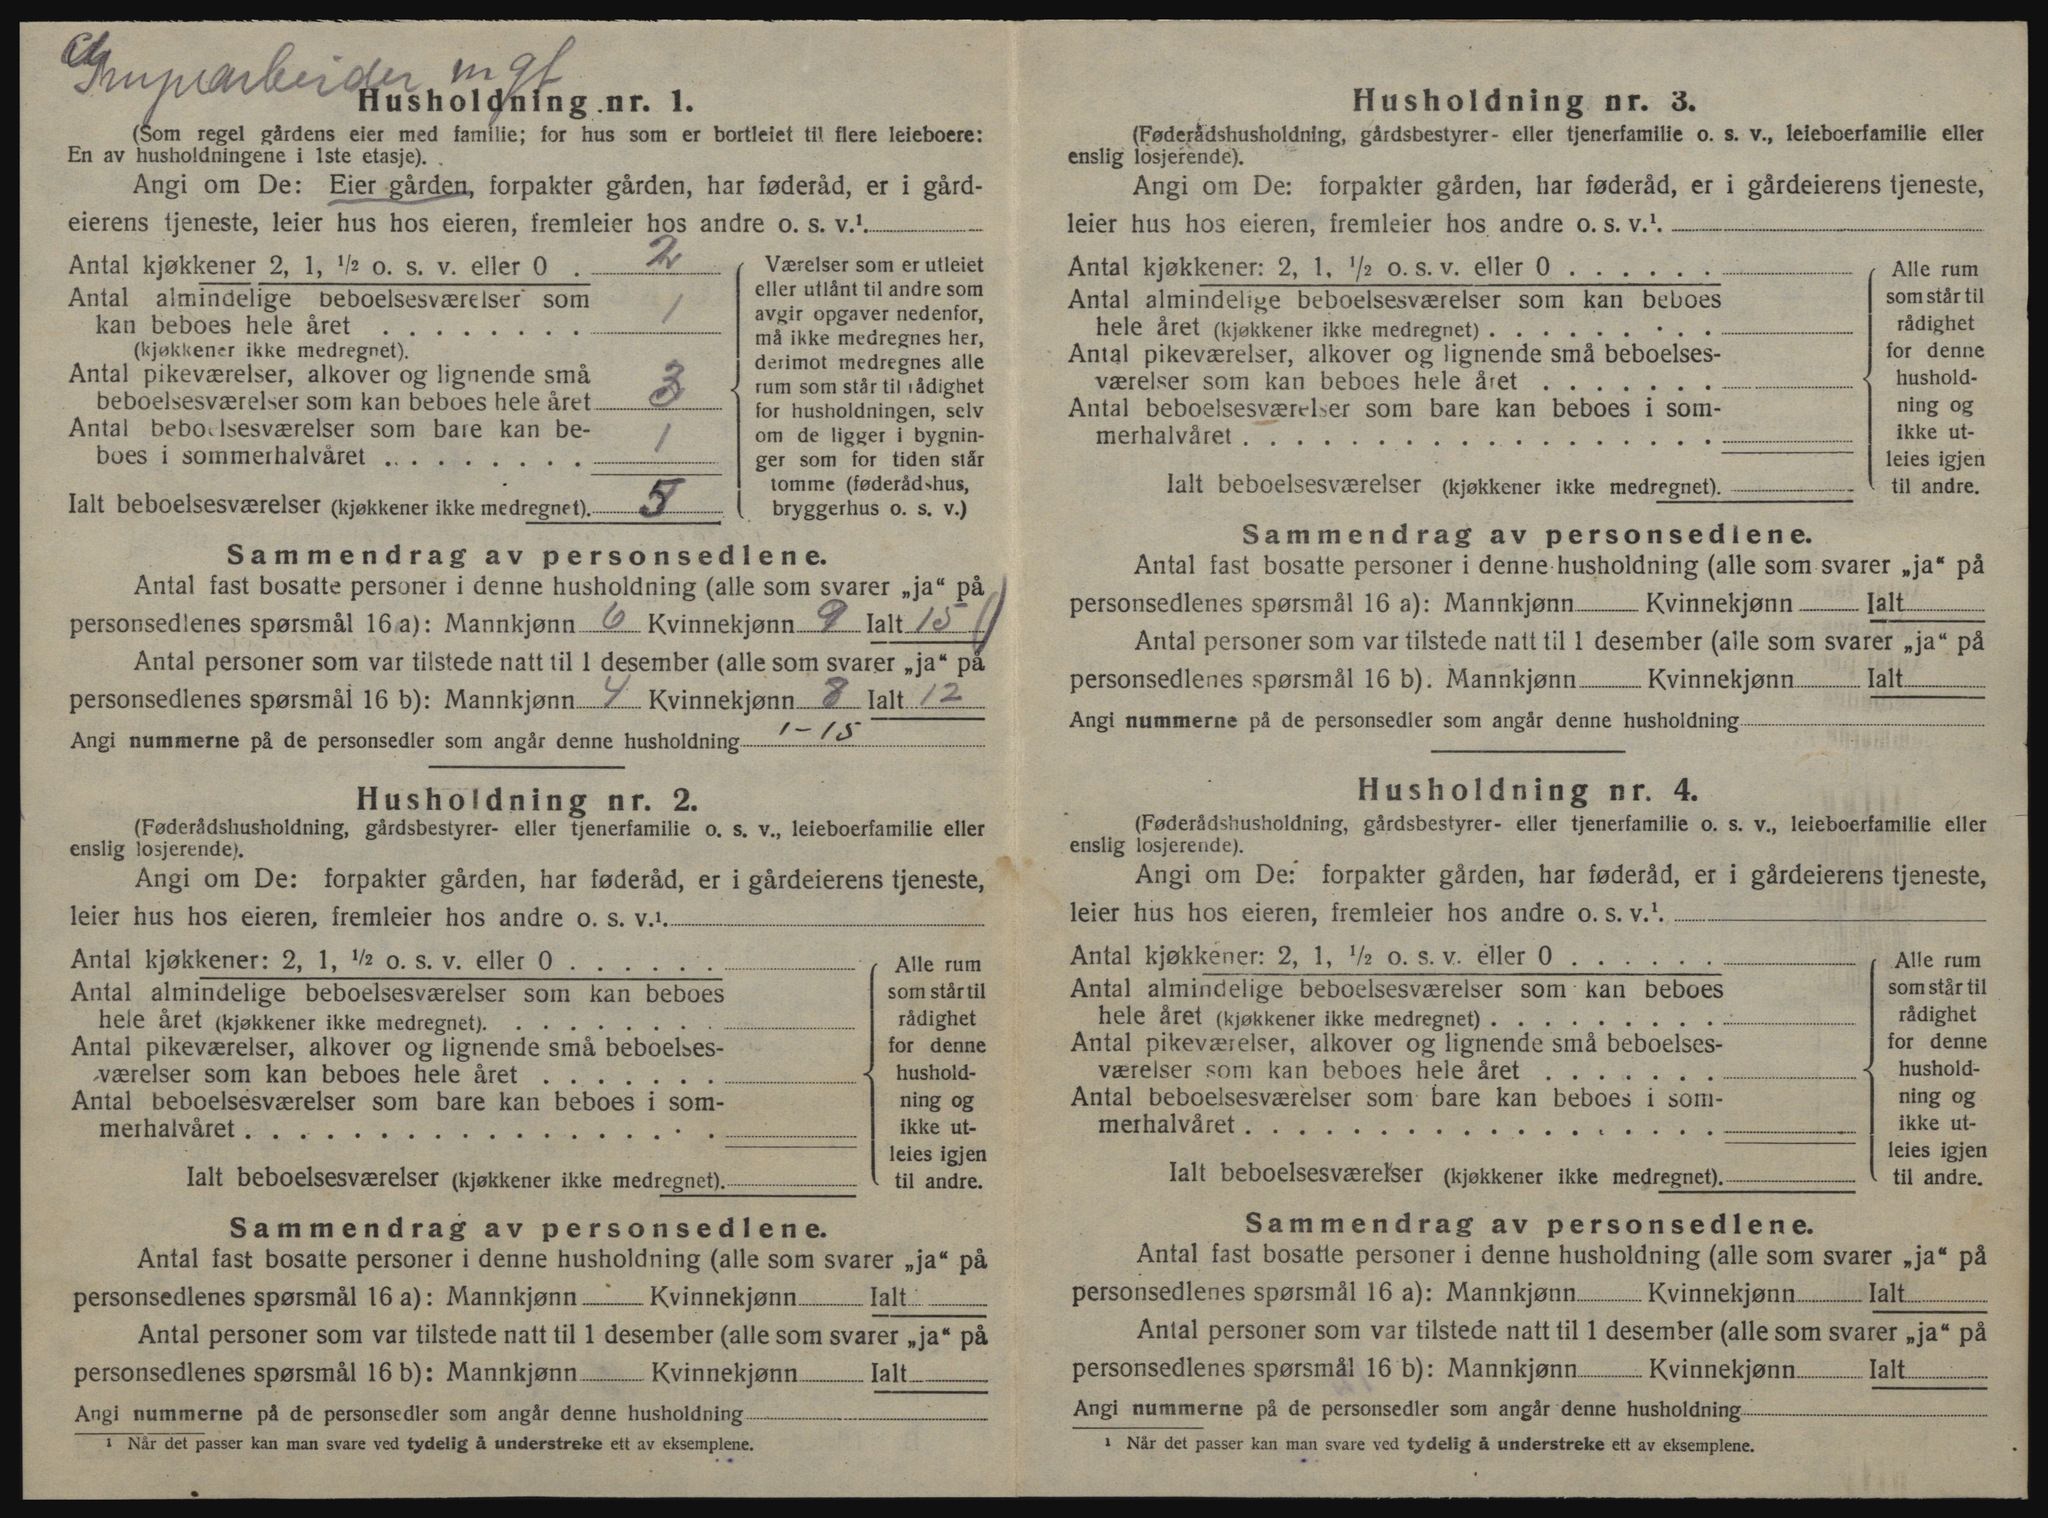 Gruvearbeider mgf
Husholdning nr. 1.
(Som regel gårdens eier med familie; for hus som er bortleiet til flere leieboere:
En av husholdningene i 1ste etasje).
Angi om De: Eier gården, forpakter gården, har føderåd, er i gård-
eierens tjeneste, leier hus hos eieren, fremleier hos andre o. s. v.¹
Antal kjøkkener 2, 1, ½ o. s. v. eller 0 . 2
Antal almindelige beboelsesværelser som
kan beboes hele året . . . . . . . . 1
(kjøkkener ikke medregnet).
Antal pikeværelser, alkover og lignende små
beboelsesværelser som kan beboes hele året 3
Antal beboelsesværelser som bare kan be-
boes i sommerhalvåret . . . . . . . . 1
Ialt beboelsesværelser (kjøkkener ikke medregnet). 5
Værelser som er utleiet
eller utlånt til andre som
avgir opgaver nedenfor,
må ikke medregnes her,
derimot medregnes alle
rum som står til rådighet
for husholdningen, selv
om de ligger i bygnin-
ger som for tiden står
tomme (føderådshus,
bryggerhus o. s. v.)
Sammendrag av personsedlene.
Antal fast bosatte personer i denne husholdning (alle som svarer „ja“ på
personsedlenes spørsmål 16 a): Mannkjønn 6 Kvinnekjønn 9 Ialt 15
Antal personer som var tilstede natt til 1 desember (alle som svarer „ja“ på
personsedlenes spørsmål 16 b): Mannkjønn 4 Kvinnekjønn 8 Ialt 12
Angi nummerne på de personsedler som angår denne husholdning 1-15
Husholdning nr. 2.
(Føderådshusholdning, gårdsbestyrer- eller tjenerfamilie o. s. v., leieboerfamilie eller
enslig losjerende).
Angi om De: forpakter gården, har føderåd, er i gårdeierens tjeneste,
leier hus hos eieren, fremleier hos andre o. s. v.¹.
Antal kjøkkener: 2, 1, ½ o. s. v. eller 0 . . . . . .
Antal almindelige beboelsesværelser som kan beboes
hele året (kjøkkener ikke medregnet). . . . . . . . .
Antal pikeværelser, alkover og lignende små beboelses-
værelser som kan beboes hele året . . . . . . .
Antal beboelsesværelser som bare kan beboes i som-
merhalvåret . . . . . . . . . . . . . . . . . .
Ialt beboelsesværelser (kjøkkener ikke medregnet).
Alle rum
som står til
rådighet
for denne
hushold-
ning og
ikke ut-
leies igjen
til andre.
Sammendrag av personsedlene.
Antal fast bosatte personer i denne husholdning (alle som svarer „ja“ på
personsedlenes spørsmål 16 a): Mannkjønn Kvinnekjønn Ialt
Antal personer som var tilstede natt til 1 desember (alle som svarer „ja“ på
personsedlenes spørsmål 16 b): Mannkjønn Kvinnekjønn Ialt
Angi nummerne på de personsedler som angår denne husholdning
¹ Når det passer kan man svare ved tydelig å understreke ett av eksemplene.
Husholdning nr. 3.
(Føderådshusholdning, gårdsbestyrer- eller tjenerfamilie o. s. v., leieboerfamilie eller
enslig losjerende).
Angi om De: forpakter gården, har føderåd, er i gårdeierens tjeneste,
leier hus hos eieren, fremleier hos andre o. s. v.¹.
Antal kjøkkener: 2, 1, ½ o. s. v. eller 0 . . . . . .
Antal almindelige beboelsesværelser som kan beboes
hele året (kjøkkener ikke medregnet) . . . . . . . . .
Antal pikeværelser, alkover og lignende små beboelses-
værelser som kan beboes hele året . . . . . . .
Antal beboelsesværelser som bare kan beboes i som-
merhalvåret . . . . . . . . . . . . . . . . . .
Ialt beboelsesværelser (kjøkkener ikke medregnet).
Alle rum
som står til
rådighet
for denne
hushold-
ning og
ikke ut-
leies igjen
til andre.
Sammendrag av personsedlene.
Antal fast bosatte personer i denne husholdning (alle som svarer „ja“ på
personsedlenes spørsmål 16 a): Mannkjønn Kvinnekjønn Ialt
Antal personer som var tilstede natt til 1 desember (alle som svarer „ja“ på
personsedlenes spørsmål 16 b). Mannkjønn Kvinnekjønn Ialt
Angi nummerne på de personsedler som angår denne husholdning
Husholdning nr. 4.
(Føderådshusholdning, gårdsbestyrer- eller tjenerfamilie o. s. v., leieboerfamilie eller
enslig losjerende).
Angi om De: forpakter gården, har føderåd, er i gårdeierens tjeneste,
leier hus hos eieren, fremleier hos andre o. s. v.¹.
Antal kjøkkener: 2, 1, ½ o. s. v. eller 0 . . . . . .
Antal almindelige beboelsesværelser som kan beboes
hele året (kjøkkener ikke medregnet) . . . . . . . . .
Antal pikeværelser, alkover og lignende små beboelses-
værelser som kan beboes hele året . . . . . . .
Antal beboelsesværelser som bare kan beboes i som-
merhalvåret . . . . . . . . . . . . . . . . . .
Ialt beboelsesværelser (kjøkkener ikke medregnet).
Alle rum
som står til
rådighet
for denne
hushold-
ning og
ikke ut-
leies igjen
til andre.
Sammendrag av personsedlene.
Antal fast bosatte personer i denne husholdning (alle som svarer „ja“ på
personsedlenes spørsmål 16 a): Mannkjønn Kvinnekjønn Ialt
Antal personer som var tilstede natt til 1 desember (alle som svarer „ja“ på
personsedlenes spørsmål 16 b): Mannkjønn Kvinnekjønn Ialt
Angi nummerne på de personsedler som angår denne husholdning
¹ Når det passer kan man svare ved tydelig å understreke ett av eksemplene.